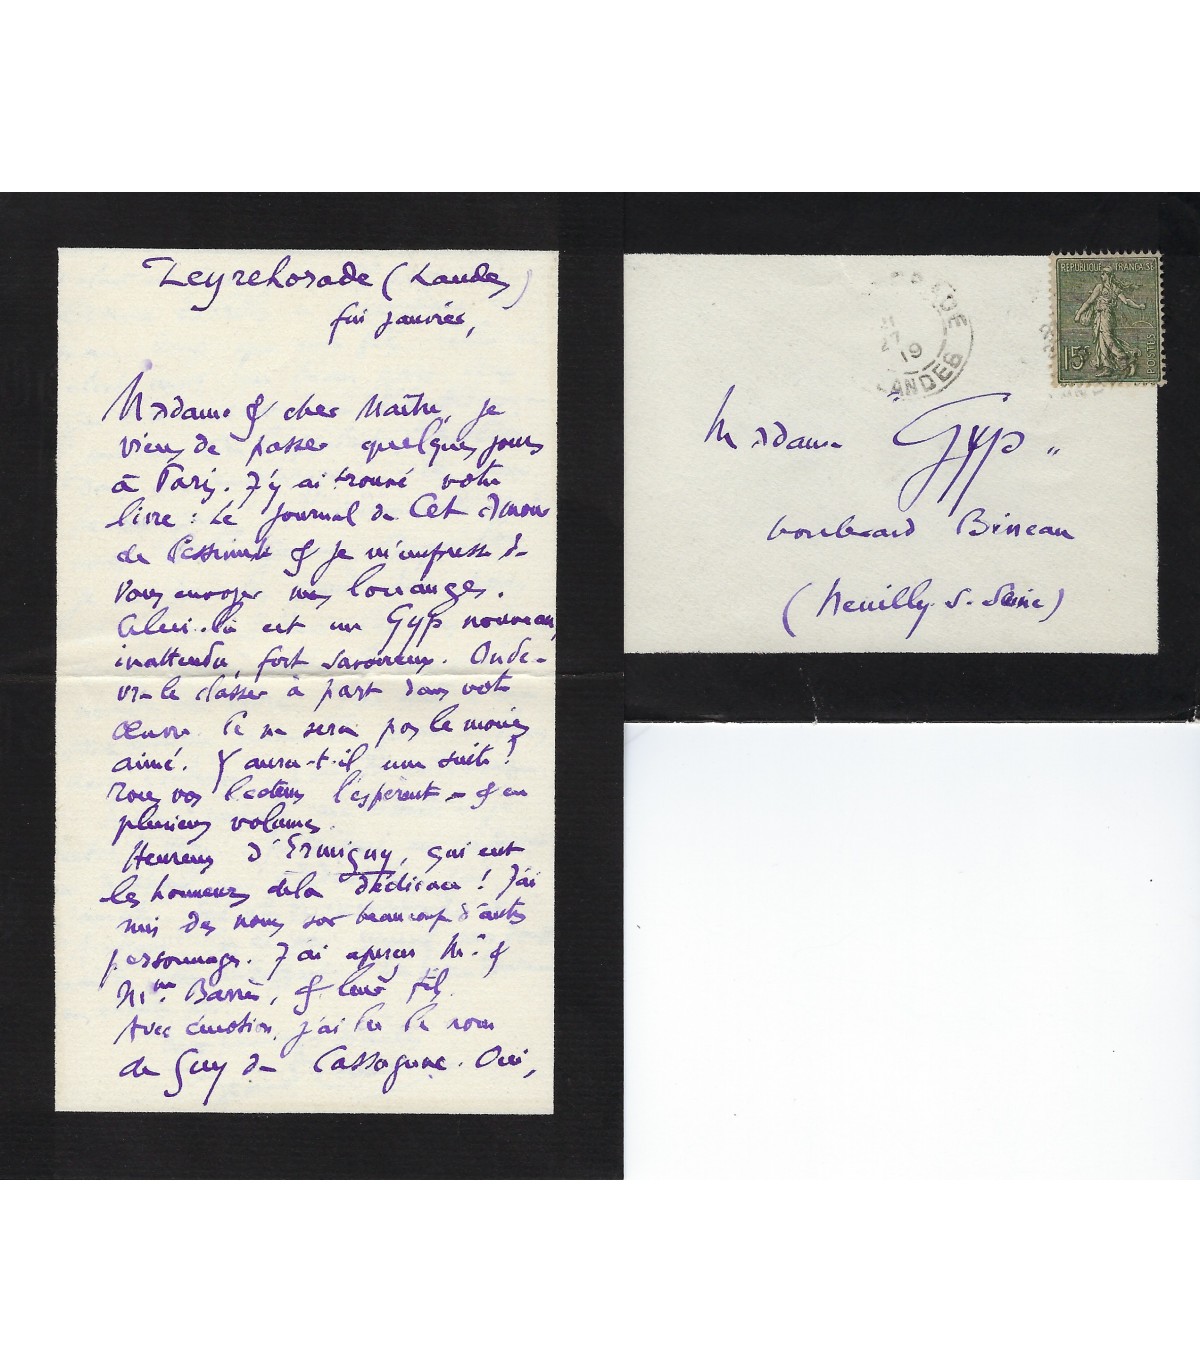 Peyrehorade (Landes)
fin janvier,
Madame & cher Maître, je
viens de passer quelques jours
à Paris. J'y ai trouvé votre
livre : Le Journal de Cet Amour
de & je m'empresse de
vous envoyer mes louanges.
Celui-là est un Gyp nouveau,
inattendu, fort savoureux. On de-
vra le classer à part dans votre
œuvre. Ce ne sera pas le moins
aimé. Y aura-t-il une suite ?
Tous vos lecteurs l'espèrent - & en
plusieurs volumes.
Heureux d'Ermigny, qui eut
les honneurs de la dédicace ! J'ai
mis des noms sur beaucoup d'autres
personnages. J'ai aperçu Mr &
Mme Barrès, & leur fils.
Avec émotion, j'ai lu le nom
de Guy de Cassagnac. Oui,
Madame Gyp
boulevard Bineau
(Neuilly-s-Seine)
REPUBLIQUE FRANÇAISE
15c
POSTES
31
27
19
LANDES